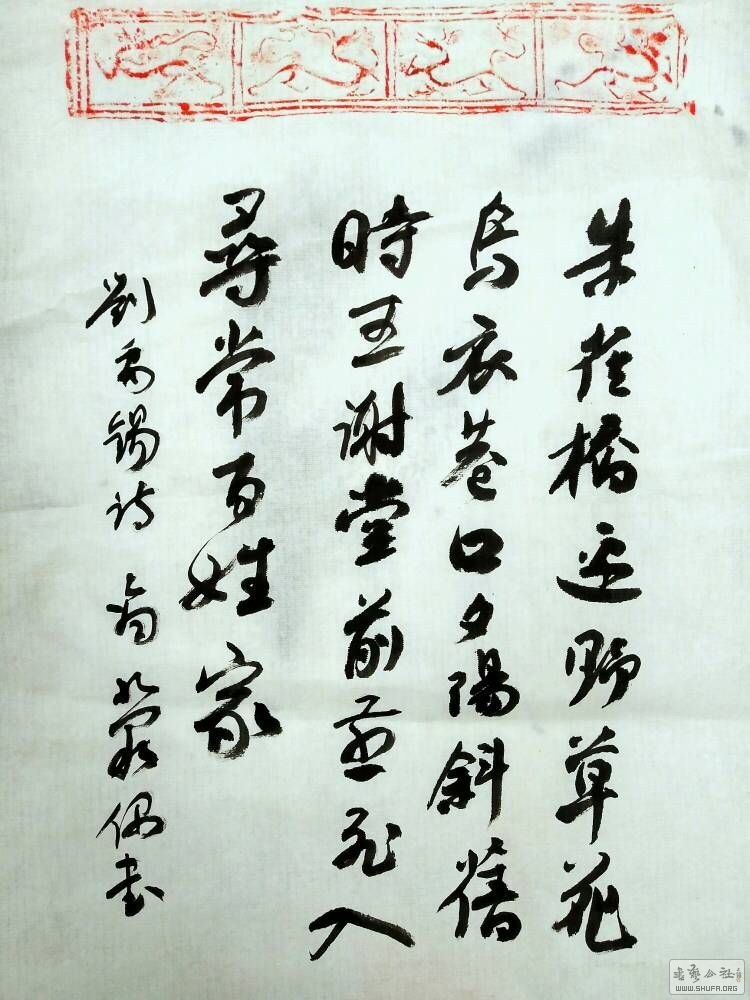 朱雀橋边野草花
烏衣巷口夕陽斜舊
時王謝堂前燕飛入
尋常百姓家
劉禹錫诗 偶書
书艺公社
WWW.SHUFA.ORG